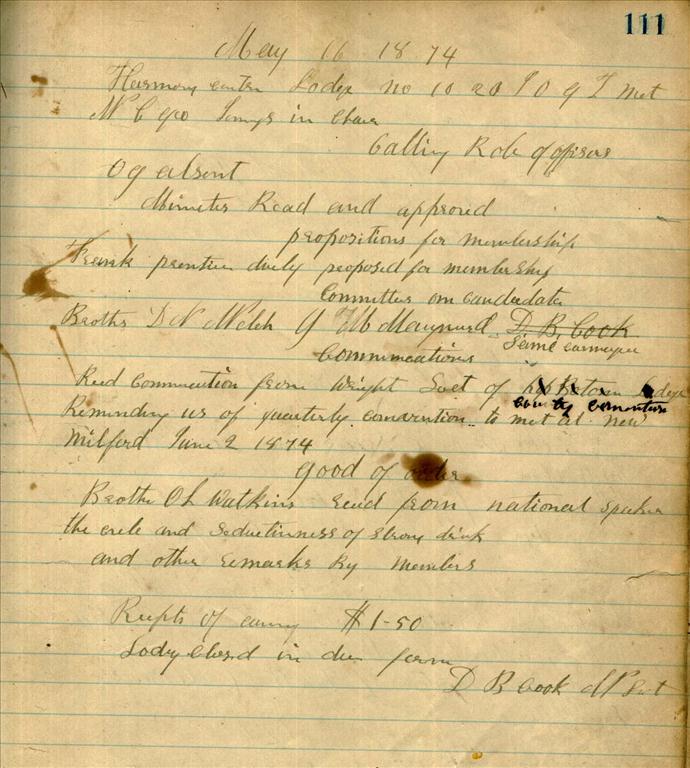 111
May 16 1874
Harmony center Lodge no 1020 I O G T met
W C Geo in Chair
Calling Role of officers
O G absent
Minutes Read and approved
propositions for membership
Frank prentice duly proposed for membership
Committee on candadate
Brothers D N Welch G W Maynard D B Cook
Commucations
Recd Commucation from Wright Sect of
county convention
Reminding us of quarterly convention to met at New
Milford June 2 1874
good of order
Brother O L Watkins read from national speaker
the evels and seductivness of strong drink
and other remarks by members
Recepts of evening $1-50
Lodge Closed in due form
D B Cook W Sect